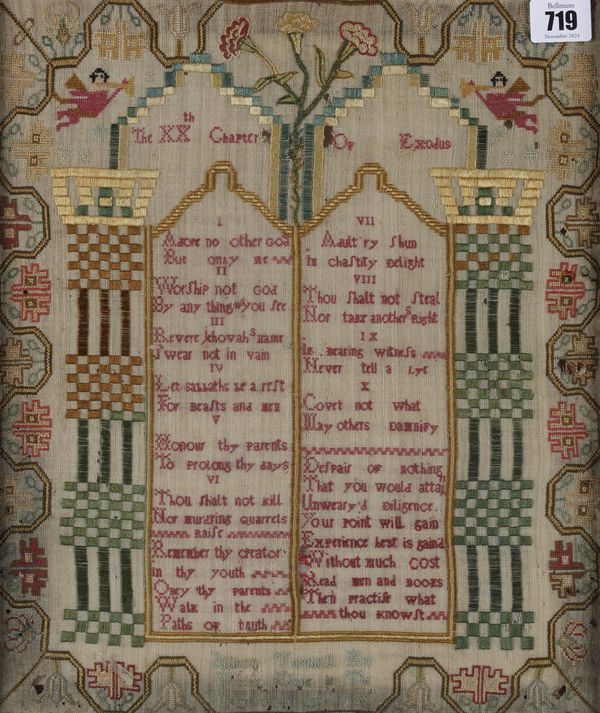 Bellmans
719
November 2024
The XXth Chapter Of Exodus
I
Adore no other God
But only me
II
Worship not God
By any thing you see
III
Revere Jehovahs name
Swear not in vain
IV
Let sabbaths be a rest
For Beasts and men
V
Honour thy Parents
To prolong thy days
VI
Thou shalt not kill
Nor murdring quarrels
raise
Remember thy creator
in thy youth
Obey thy Parents
Walk in the
Paths of truth
VII
Adult'ry shun
in chastity Delight
VIII
Thou shalt not steal
Nor take anothers Right
IX
In bearing witness
Never tell a Lye
X
Covet not what
May others Damnify
Despair of nothing
That you would attain
Unweary'd Diligence
Your Point will gain
Experience best is gaind
Without much cost
Read men and Books
Then Practise what
thou knowst